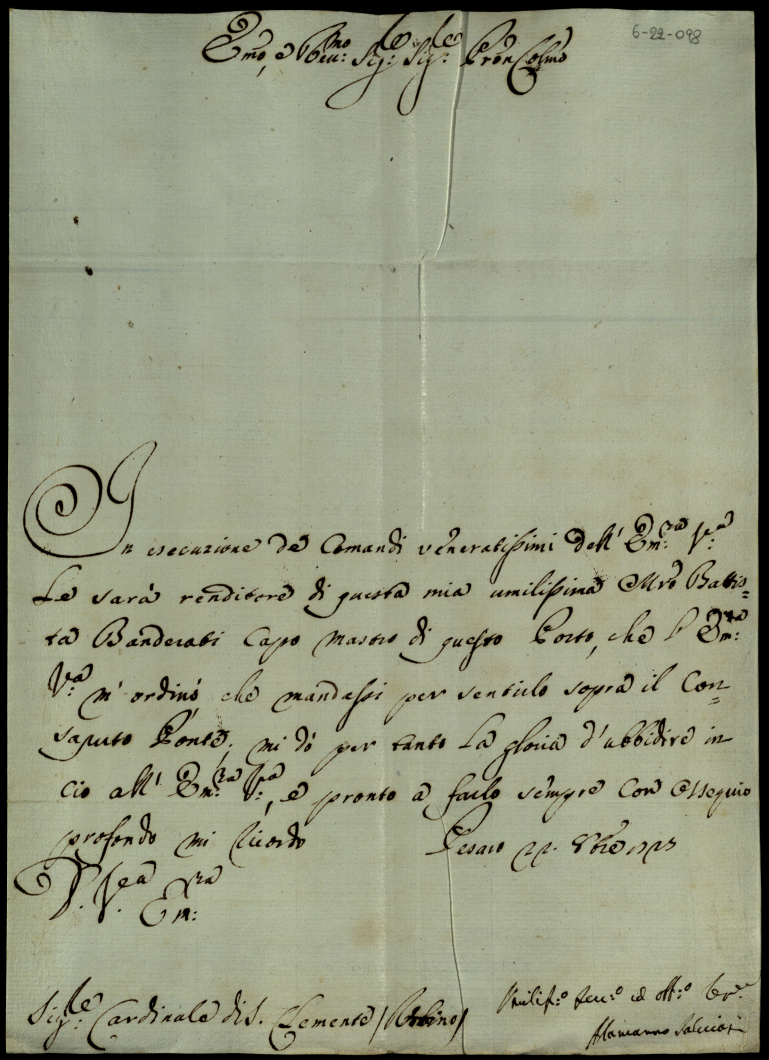 6-22-098
Emo, e Reu:mo Sig:le Sig:le Pron Colmo
In esecuzione de Comandi veneratissimi dell' Em:za V:ra
Le sarà renditore di questa mia umilissima Mro Battis=
ta Banderati Capo Mastro di questo Porto, che l' Em:za
V:ra m' ordinò che mandassi per sentirlo sopra il Con=
saputo Ponte; mi dò per tanto La gloria d' ubbidire in
ciò all' Em:za V:ra, e pronto a farlo sempre Con Ossequio
profondo mi ricordo Pesaro 22. 8bre 1723
D. V:ra Em:za
Sig:le Cardinale di S. Clemente / Urbino /
Umilis:o Deu:o ed Obb:o Ser:e
Alamanno Salviati